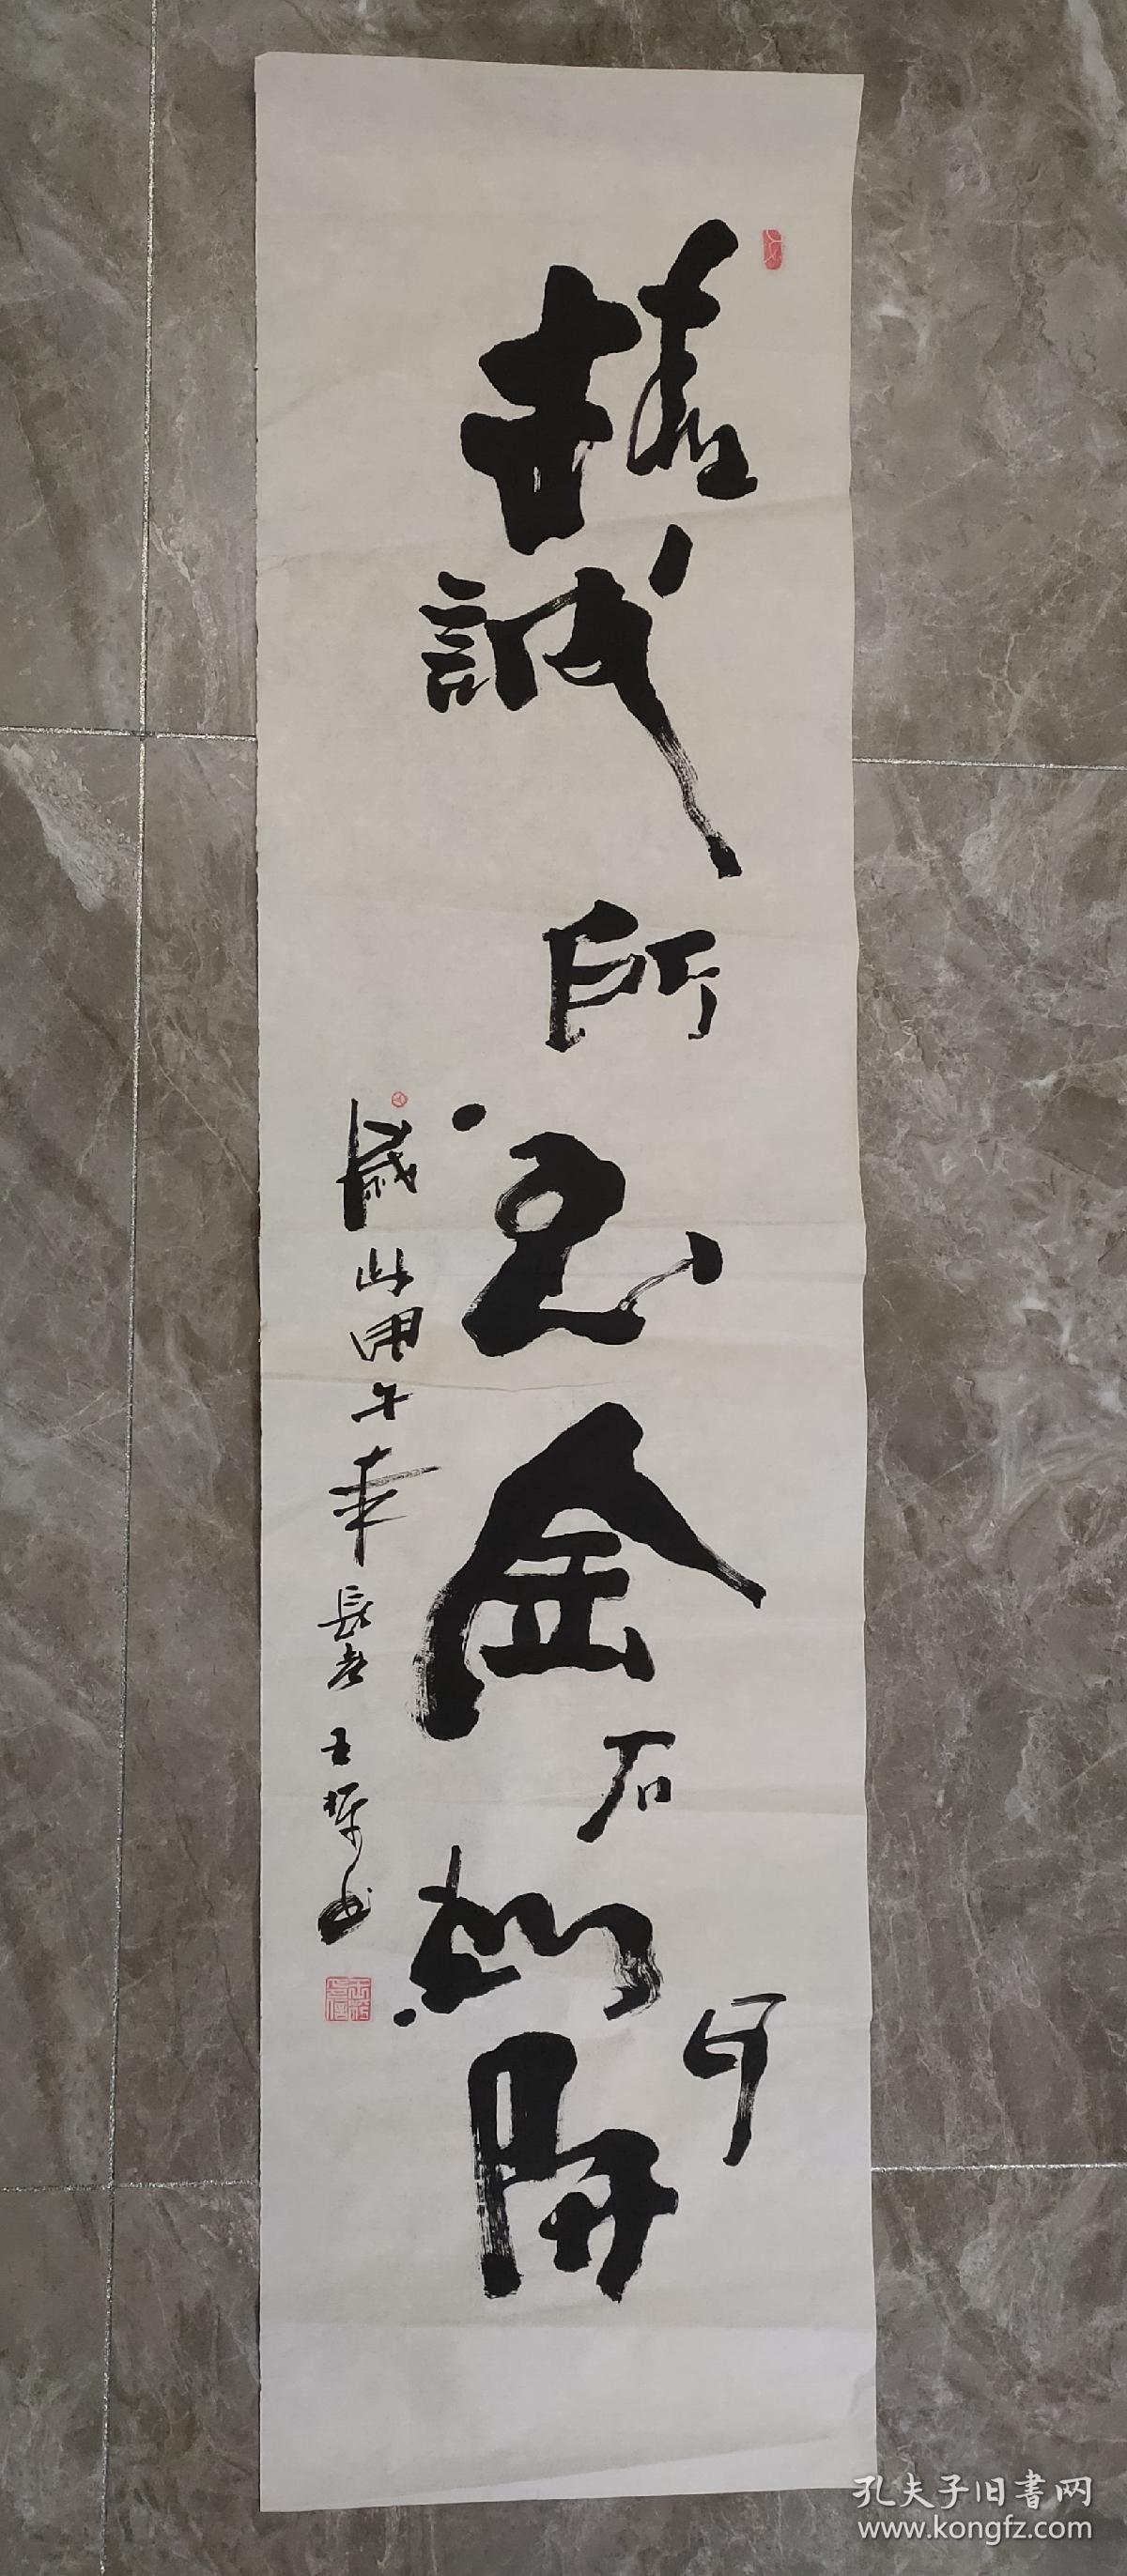 精誠所至金石為開
歲次甲午年長安王书
孔夫子旧書网
www.kongfz.com